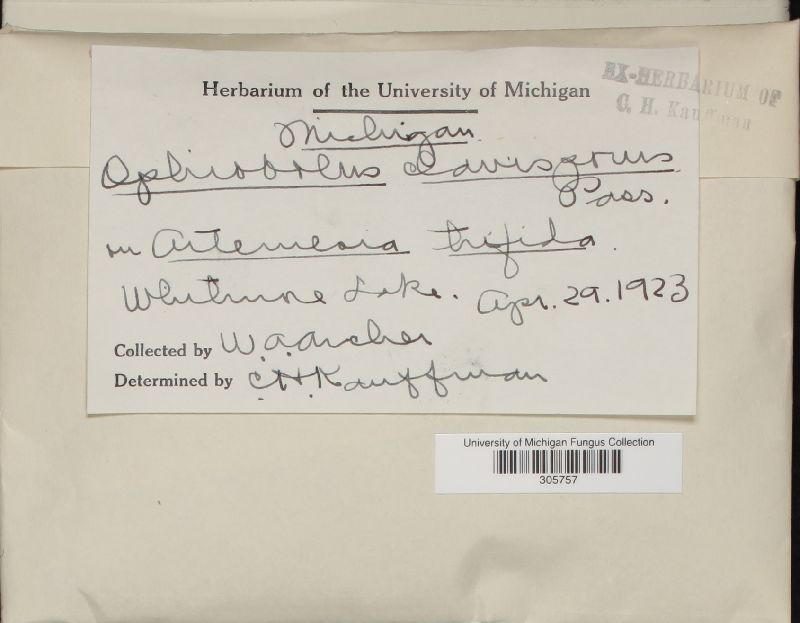 Herbarium of the University of Michigan
EX-HERBARIUM OF
C. H. Kauffman
Michigan.
Ophiobolus clavisporus
Pass.
on Artemesia trifida.
Whitmore Lake. Apr. 29. 1923
Collected by W.A. Archer
Determined by C.H. Kauffman
University of Michigan Fungus Collection
305757